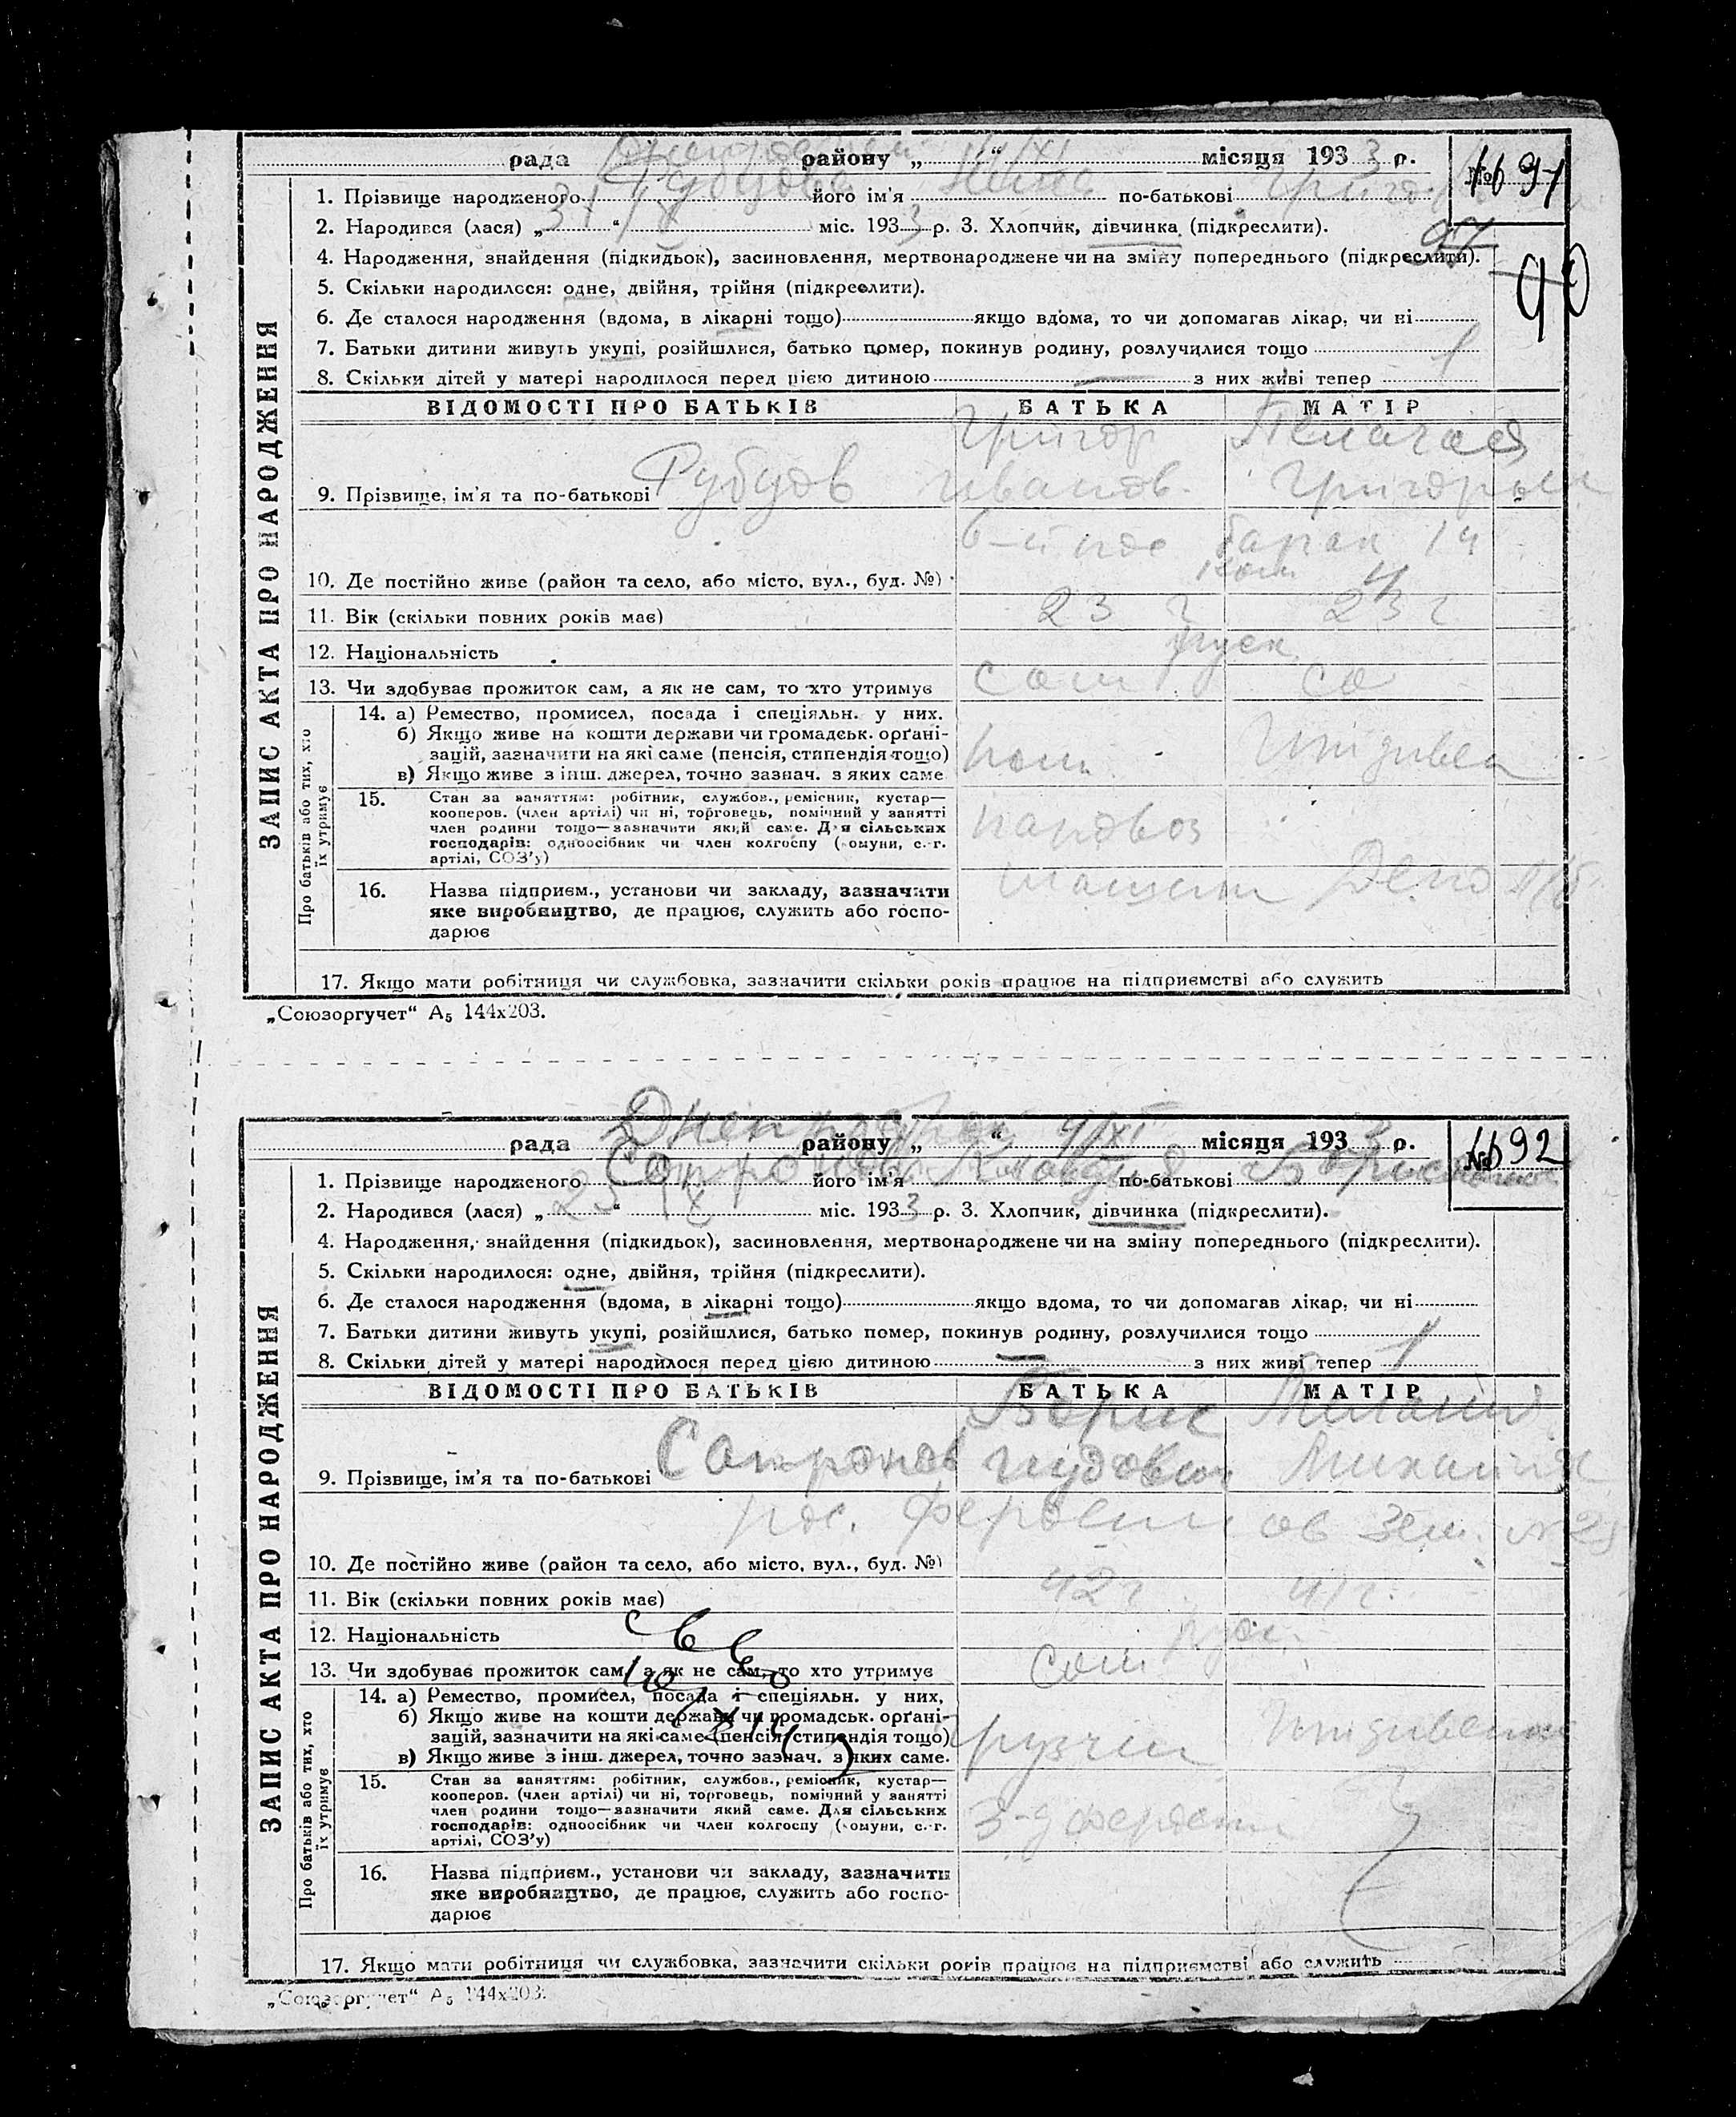 рада района „ 4/XI “ місяця 1933 р. № 1691
1. Прізвище народженого його ім'я по-батькові
2. Народився (лася) „ 31 “ X міс. 1933 р. 3. Хлопчик, дівчинка (підкреслити).
97
4. Народження, знайдення (підкидьок), засиновлення, мертвонароджене чи на зміну попереднього (підкреслити).
90
5. Скільки народилося: одне, двійня, трійня (підкреслити).
6. Де сталося народження (вдома, в лікарні тощо) якщо вдома, то чи допомагав лікар, чи ні
7. Батьки дитини живуть укупі, розійшлися, батько помер, покинув родину, розлучилися тощо
8. Скільки дітей у матері народилося перед цією дитиною — з них живі тепер 1
ВІДОМОСТІ ПРО БАТЬКІВ БАТЬКА МАТІР
Григор
9. Прізвище, ім'я та по-батькові Рубцов Иванов. Григорьев
барак 14
10. Де постійно живе (район та село, або місто, вул., буд. №)
ком. 4
11. Вік (скільки повних років має) 23 г 23 г
12. Національність руск.
13. Чи здобуває прожиток сам, а як не сам, то хто утримує сам
14. а) Ремество, промисел, посада і спеціяльн. у них.
б) Якщо живе на кошти держави чи громадськ. орґані-
зацій, зазначити на які саме (пенсія, стипендія тощо)
пом. Иждивен
в) Якщо живе з інш. джерел, точно зазнач. з яких саме
15. Стан за заняттям: робітник, службов., ремісник, кустар—
кооперов. (член артілі) чи ні, торговець, помічний у занятті
член родини тощо—зазначити який саме. Для сільських
господарів: одноосібник чи член колгоспу (комуни, с.-г.
артілі, СОЗ'у)
паровоз
16. Назва підприєм., установи чи закладу, зазначити
машин Депо
яке виробництво, де працює, служить або госпо-
дарює
17. Якщо мати робітниця чи службовка, зазначити скільки років працює на підприємстві або служить
ЗАПИС АКТА ПРО НАРОДЖЕННЯ
Про батьків або тих, хто
їх утримує
„Союзоргучет“ А₅ 144х203.
рада району „ 4/XI “ місяця 1933 р. № 1692
1. Прізвище народженого Сапронова його ім'я Клавдия по-батькові Борисовна
2. Народився (лася) „ 25 “ X міс. 1933 р. 3. Хлопчик, дівчинка (підкреслити).
4. Народження, знайдення (підкидьок), засиновлення, мертвонароджене чи на зміну попереднього (підкреслити).
5. Скільки народилося: одне, двійня, трійня (підкреслити).
6. Де сталося народження (вдома, в лікарні тощо) якщо вдома, то чи допомагав лікар, чи ні
7. Батьки дитини живуть укупі, розійшлися, батько помер, покинув родину, розлучилися тощо
8. Скільки дітей у матері народилося перед цією дитиною — з них живі тепер 1
ВІДОМОСТІ ПРО БАТЬКІВ БАТЬКА МАТІР
Борис
9. Прізвище, ім'я та по-батькові Сапронов
пос. зем. № 2
10. Де постійно живе (район та село, або місто, вул., буд. №)
11. Вік (скільки повних років має) 42 г 41 г.
12. Національність рус.
13. Чи здобуває прожиток сам, а як не сам, то хто утримує сам
14. а) Ремество, промисел, посада і спеціяльн. у них,
б) Якщо живе на кошти держави чи громадськ. орґані-
зацій, зазначити на які саме (пенсія, стипендія тощо)
грузчик Иждивен
в) Якщо живе з інш. джерел, точно зазнач. з яких саме.
15. Стан за заняттям: робітник, службов., ремісник, кустар—
кооперов. (член артілі) чи ні, торговець, помічний у занятті
член родини тощо—зазначити який саме. Для сільських
господарів: одноосібник чи член колгоспу (комуни, с.-г.
артілі, СОЗ'у)
16. Назва підприєм., установи чи закладу, зазначити
яке виробництво, де працює, служить або госпо-
дарює
17. Якщо мати робітниця чи службовка, зазначити скільки років працює на підприємстві або служить
ЗАПИС АКТА ПРО НАРОДЖЕННЯ
Про батьків або тих, хто
їх утримує
„Союзоргучет“ А₅ 144х203.